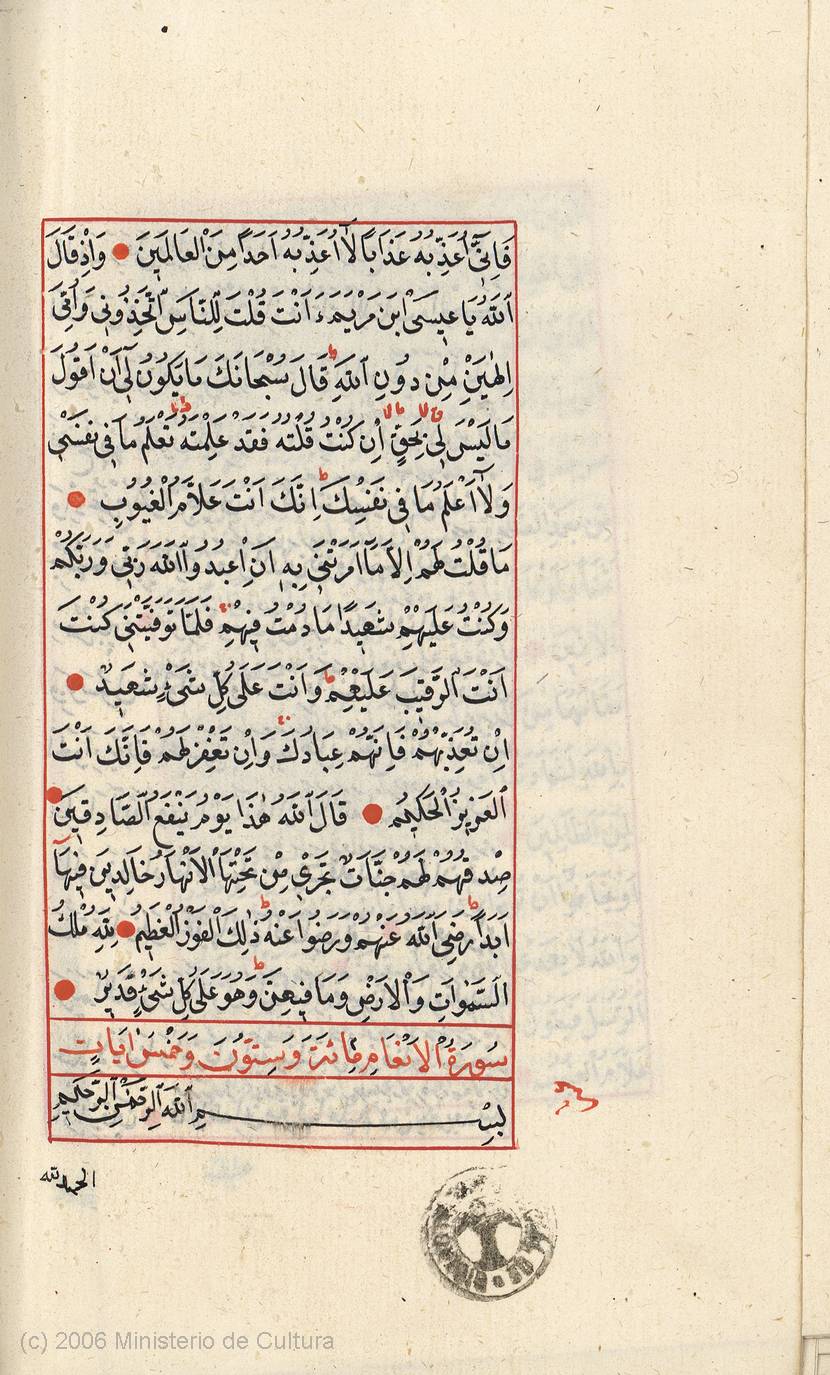 فَاِنّٖٓي اُعَذِّبُهُ عَذَابًا لَٓا اُعَذِّبُهُٓ اَحَدًا مِنَ الْعَالَمِينَ وَاِذْ قَالَ
اللّٰهُ يَا عِيسَى ابْنَ مَرْيَمَ ءَاَنْتَ قُلْتَ لِلنَّاسِ اتَّخِذُونِي وَاُمِّيَ
اِلٰهَيْنِ مِنْ دُونِ اللّٰهِ ط قَالَ سُبْحَانَكَ مَا يَكُونُ لِٓي اَنْ اَقُولَ
مَا لَيْسَ لِي بِحَقٍّ اِنْ كُنْتُ قُلْتُهُ فَقَدْ عَلِمْتَهُ ط تَعْلَمُ مَا فِي نَفْسِي
وَلَٓا اَعْلَمُ مَا فِي نَفْسِكَ ط اِنَّكَ اَنْتَ عَلَّامُ الْغُيُوبِ
مَا قُلْتُ لَهُمْ اِلَّا مَٓا اَمَرْتَنِي بِهِ اَنِ اعْبُدُوا اللّٰهَ رَبِّي وَرَبَّكُمْ
وَكُنْتُ عَلَيْهِمْ شَهِيدًا مَا دُمْتُ فِيهِمْ فَلَمَّا تَوَفَّيْتَنِي كُنْتَ
اَنْتَ الرَّقِيبَ عَلَيْهِمْ ط وَاَنْتَ عَلَى كُلِّ شَيْءٍ شَهِيدٌ
اِنْ تُعَذِّبْهُمْ فَاِنَّهُمْ عِبَادُكَ وَاِنْ تَغْفِرْ لَهُمْ فَاِنَّكَ اَنْتَ
الْعَزِيزُ الْحَكِيمُ قَالَ اللّٰهُ هٰذَا يَوْمُ يَنْفَعُ الصَّادِقِينَ
صِدْقُهُمْ لَهُمْ جَنَّاتٌ تَجْرِي مِنْ تَحْتِهَا الْاَنْهَارُ خَالِدِينَ فِيهَٓا
اَبَدًا ط رَضِيَ اللّٰهُ عَنْهُمْ وَرَضُوا عَنْهُ ط ذٰلِكَ الْفَوْزُ الْعَظِيمُ لِلّٰهِ مُلْكُ
السَّمٰوَاتِ وَالْاَرْضِ وَمَا فِيهِنَّ ط وَهُوَ عَلَى كُلِّ شَيْءٍ قَدِيرٌ
سُورَةُ الْاَنْعَامِ مِائَةٌ وَسِتُّونَ وَخَمْسُ اٰيَاتٍ
بِسْمِ اللّٰهِ الرَّحْمٰنِ الرَّحِيمِ
الحمد لله
(c) 2006 Ministerio de Cultura